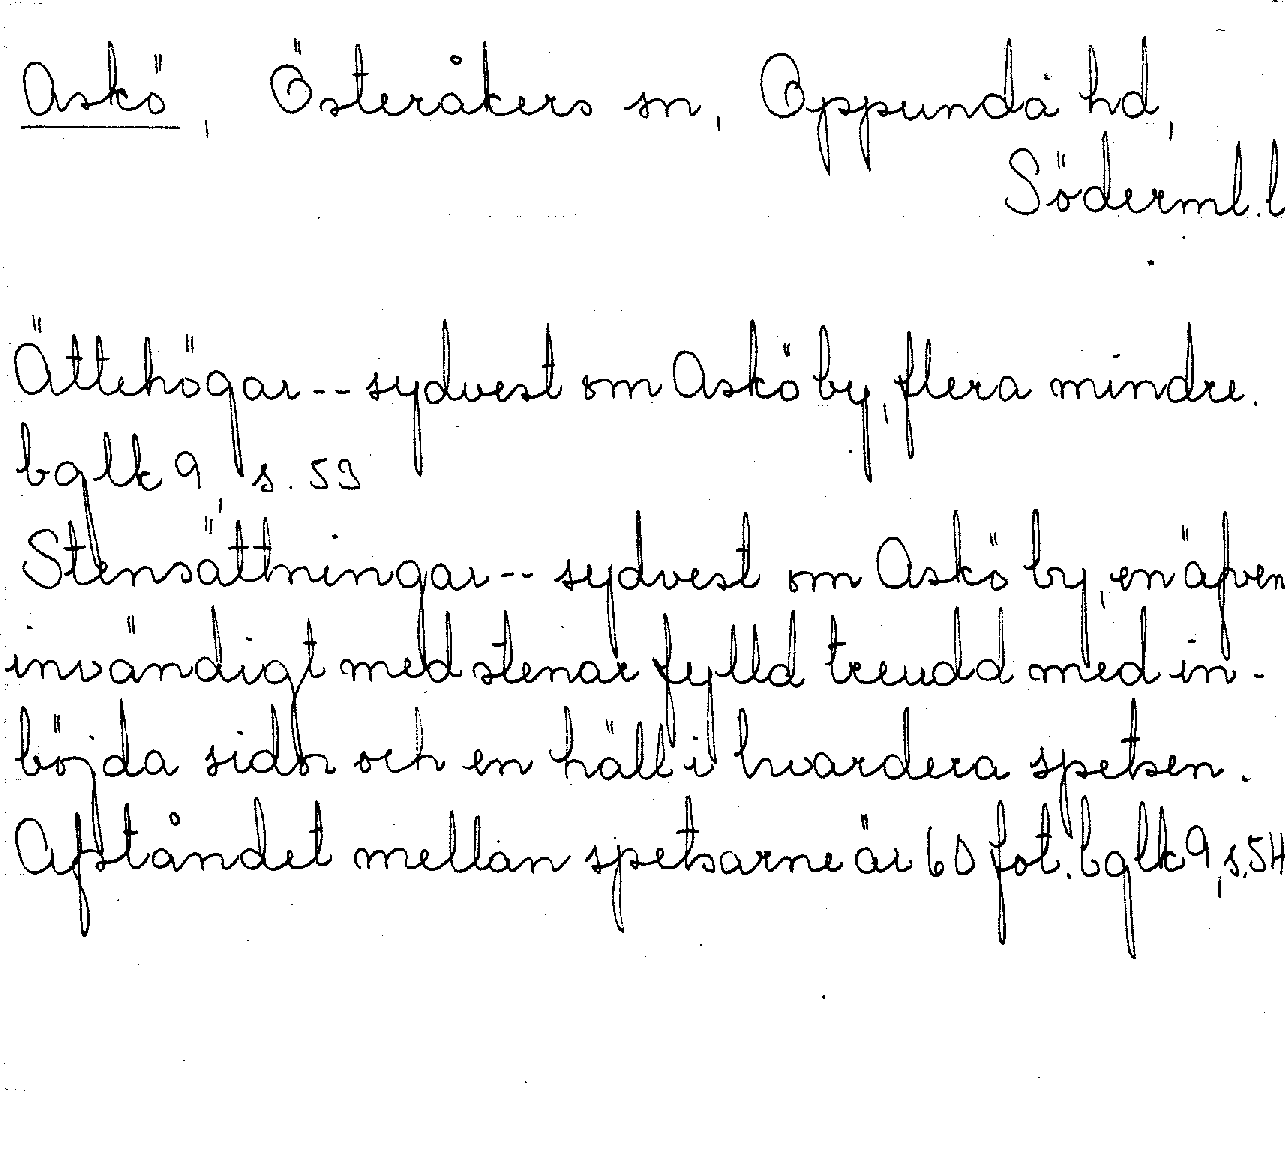 Askö, Österåkers sn, Oppunda hd,
Söderml. l
Ättehögar -- sydvest om Askö by, flera mindre.
bglk 9, s. 53
Stensättningar -- sydvest om Askö by, en äfven
invändigt med stenar fylld treudd med in-
böjda sidor och en häll i hvardera spetsen.
Afståndet mellan spetsarne är 60 fot. bglk 9, s. 54